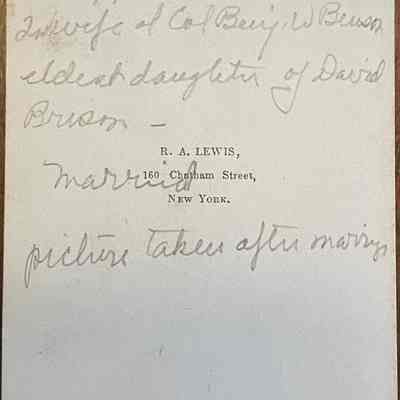 2nd wife of Col Benj. W Benson
eldest daughter of David
Brison —
R. A. LEWIS,
160 Chatham Street,
NEW YORK.
Married
picture taken after marriage